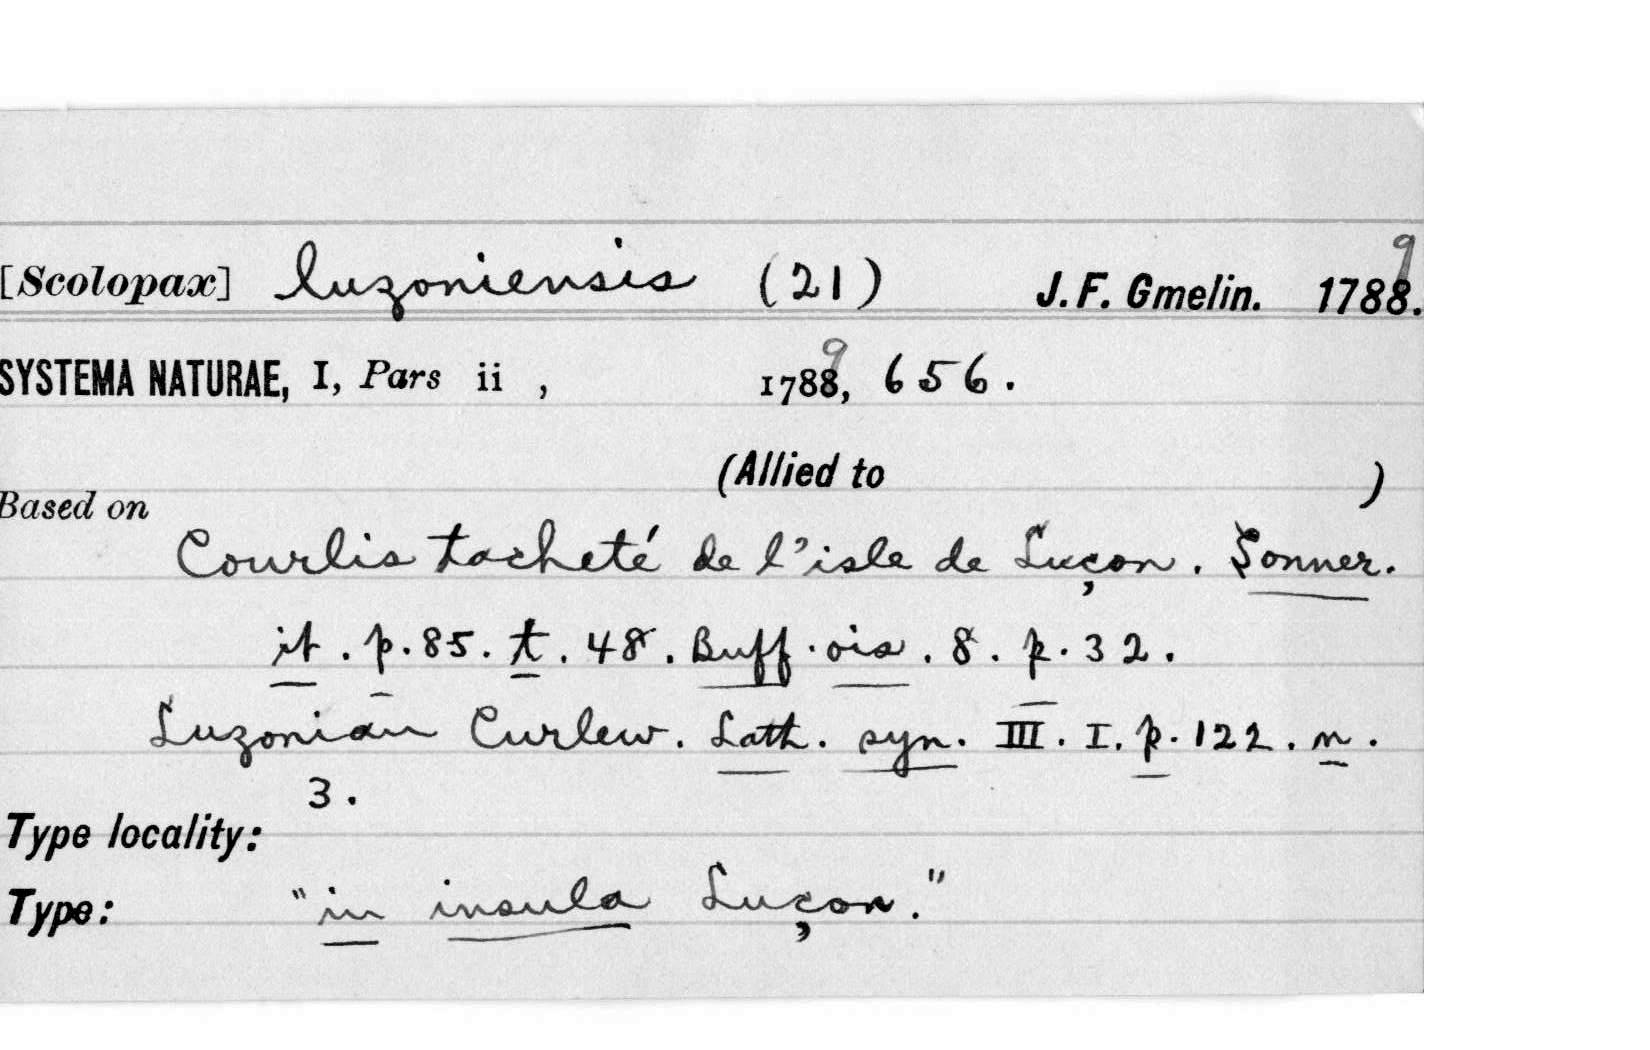 [Scolopax] luzoniensis (21) J. F. Gmelin. 1788.9
SYSTEMA NATURAE, I, Pars ii , 17889, 656.
(Allied to )
Based on
Courlis tacheté de l'isle de Luçon. Sonner.
it. p. 85. t. 48. Buff. ois. 8. p. 32.
Luzonian Curlew. Lath. syn. III. I. p. 122. n.
3.
Type locality:
Type: "in insula Luçon."